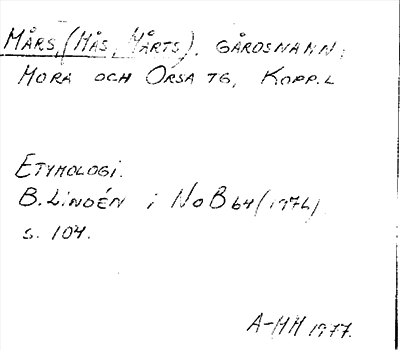 MÅRS, (MÅS, MÅRTS). GÅRDSNAMN,
MORA OCH ORSA TG, KOPP.L
ETYMOLOGI.
B. LINDÉN i NoB 64 (1976)
s. 104.
A-HH 1977.